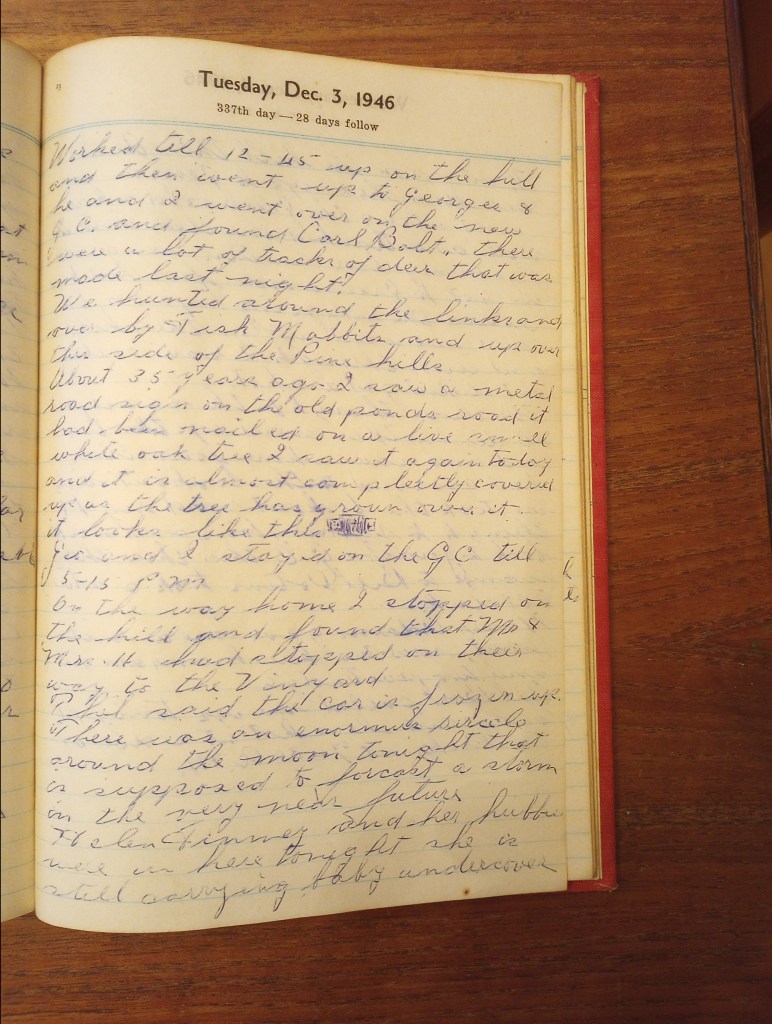 Tuesday, Dec. 3, 1946
337th day — 28 days follow
Worked till 12-45 up on the hill
and then went up to Georges &
he and I went over on the new
G.C. and found Carl Bolt., there
were a lot of tracks of deer that was
made last night!
We hunted around the links and
over by Tisk Mabbitts and up over
this side of the Pine hills
About 35 years ago I saw a metal
road sign on the old ponds road it
had been nailed on a live small
white oak tree I saw it again today
and it is almost compleetly covered
up as the tree has grown over it.
it looks like this
Geo and I stayed on the G C till
5-15 P.M
On the way home I stopped on
the hill and found that Mr &
Mrs. H had stopped on their
way to the Vinyard
Phil said the car is frozen up.
There was an enormus sircele
around the moon tonight that
is supposed to forcast a storm
in the very near future
Helen Finney and her hubbie
were in here tonight she is
still carrying baby undercover